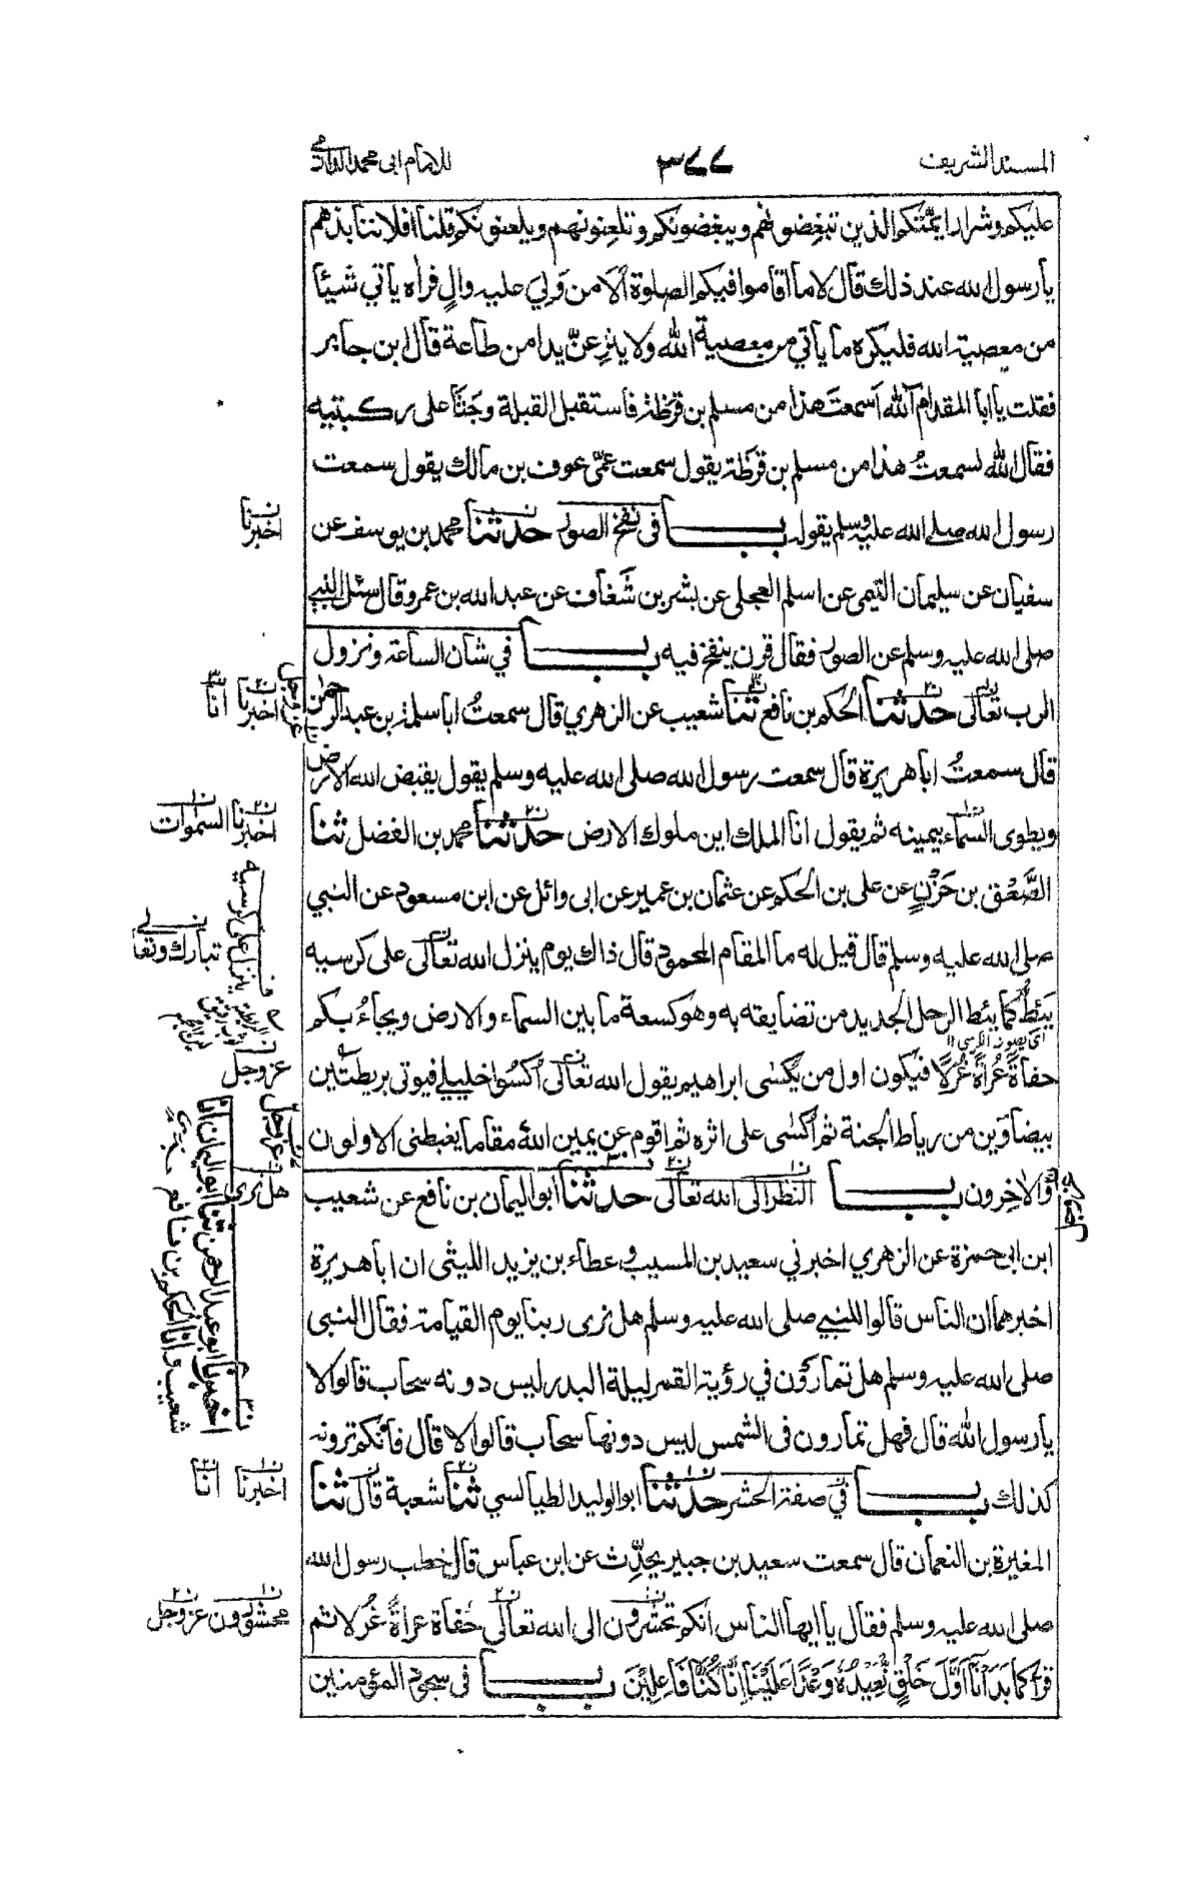 المسند الشريف
٣٧٧
للامام ابی محمد الدارمی
عليكم وشرار ايمّتكم الذين تبغضونهم ويبغضونكم وتلعنونهم ويلعنونكم قلنا افلا ننابذهم
يا رسول الله عند ذلك قال لا ما اقاموا فيكم الصلوة ألا من وَلِيَ عليه والٍ فرأه ياتي شيئًا
من معصية الله فليكره ما ياتي من معصية الله ولا ينزِعنّ يدا من طاعة قال ابن جابر
فقلت يا ابا المقدام آلله أسمعتَ هذا من مسلم بن قرظة فاستقبل القبلة وجَثَا على ركبتيه
فقال الله لسمعتُ هذا من مسلم بن قرظة يقول سمعت عمّى عوف بن مالك يقول سمعت
رسول الله صلى الله عليه وسلم يقوله بــاب فى نفخ الصور حدثنا محمد بن يوسف عن
سفيان عن سليمان التيمى عن اسلم العجلى عن بشر بن شَغَاف عن عبد الله بن عمرو قال سئل النبي
صلى الله عليه وسلم عن الصور فقال قرن ينفخ فيه بــاب في شان الساعة ونزول
الرب تعالى حدثنا الحكم بن نافع ثنا شعيب عن الزهري قال سمعتُ ابا سلمة بن عبد الرحمن
قال سمعتُ ابا هريرة قال سمعت رسول الله صلى الله عليه وسلم يقول يقبض الله الارض
ويطوى السماء بيمينه ثم يقول انا الملك اين ملوك الارض حدثنا محمد بن الفضل ثنا
الصَّعْق بن حَزْنٍ عن على بن الحكم عن عثمان بن عمير عن ابى وائل عن ابن مسعود عن النبي
صلى الله عليه وسلم قال قيل له ما المقام المحمود قال ذاك يوم ينزل الله تعالى على كرسيه
يَئِطُّ كما يئط الرحل الجديد من تضايقه به وهو كسعة ما بين السماء والارض ويجاءُ بكم
حفاةً عُراةً غُرلًا فيكون اول من يكسٰى ابراهيم يقول الله تعالى اكسُوا خليلي فيوتى بريطتَين
بيضاوَين من رياط الجنة ثم اُكسٰى على اثره ثم اقوم عن يمين الله مقاما يغبطنى الاولون
والاخِرون بــاب النظر الى الله تعالى حدثنا ابو اليمان بن نافع عن شعيب
ابن ابى حمزة عن الزهري اخبرني سعيد بن المسيب وعطاء بن يزيد الليثى ان ابا هريرة
اخبرهما ان الناس قالوا للنبي صلى الله عليه وسلم هل نرى ربنا يوم القيامة فقال النبي
صلى الله عليه وسلم هل تمارُون في رؤية القمر ليلة البدر ليس دونه سحاب قالوا لا
يا رسول الله قال فهل تمارون فى الشمس ليس دونها سحاب قالوا لا قال فانكم ترونه
كذلك بــاب في صفة الحشر حدثنا ابو الوليد الطيالسي ثنا شعبة قال ثنا
المغيرة بن النعمان قال سمعت سعيد بن جبير يحدِّث عن ابن عباس قال خطب رسول الله
صلى الله عليه وسلم فقال يا ايها الناس انكم تحشرون الى الله تعالى حُفاة عراةً غُرلا ثم
قرأ كَمَا بَدَأنَا أَوَّلَ خَلْقٍ نُّعِيْدُهٗ وَعْدًا عَلَيْنَا إِنَّا كُنَّا فَاعِلِيْنَ بــاب فى سجود المؤمنين
اخبرنا
اخبرنا انا
اخبرنا السموات
ينزل على كرسيه
تبارك وتعالى
عزوجل
عزوجل
هل نرى
اخبرنا ابو عبد الرحمن ثنا ابو اليمان انا
شعيب وانا الحكم بن نافع
اخبرنا انا
محشورون عزوجل